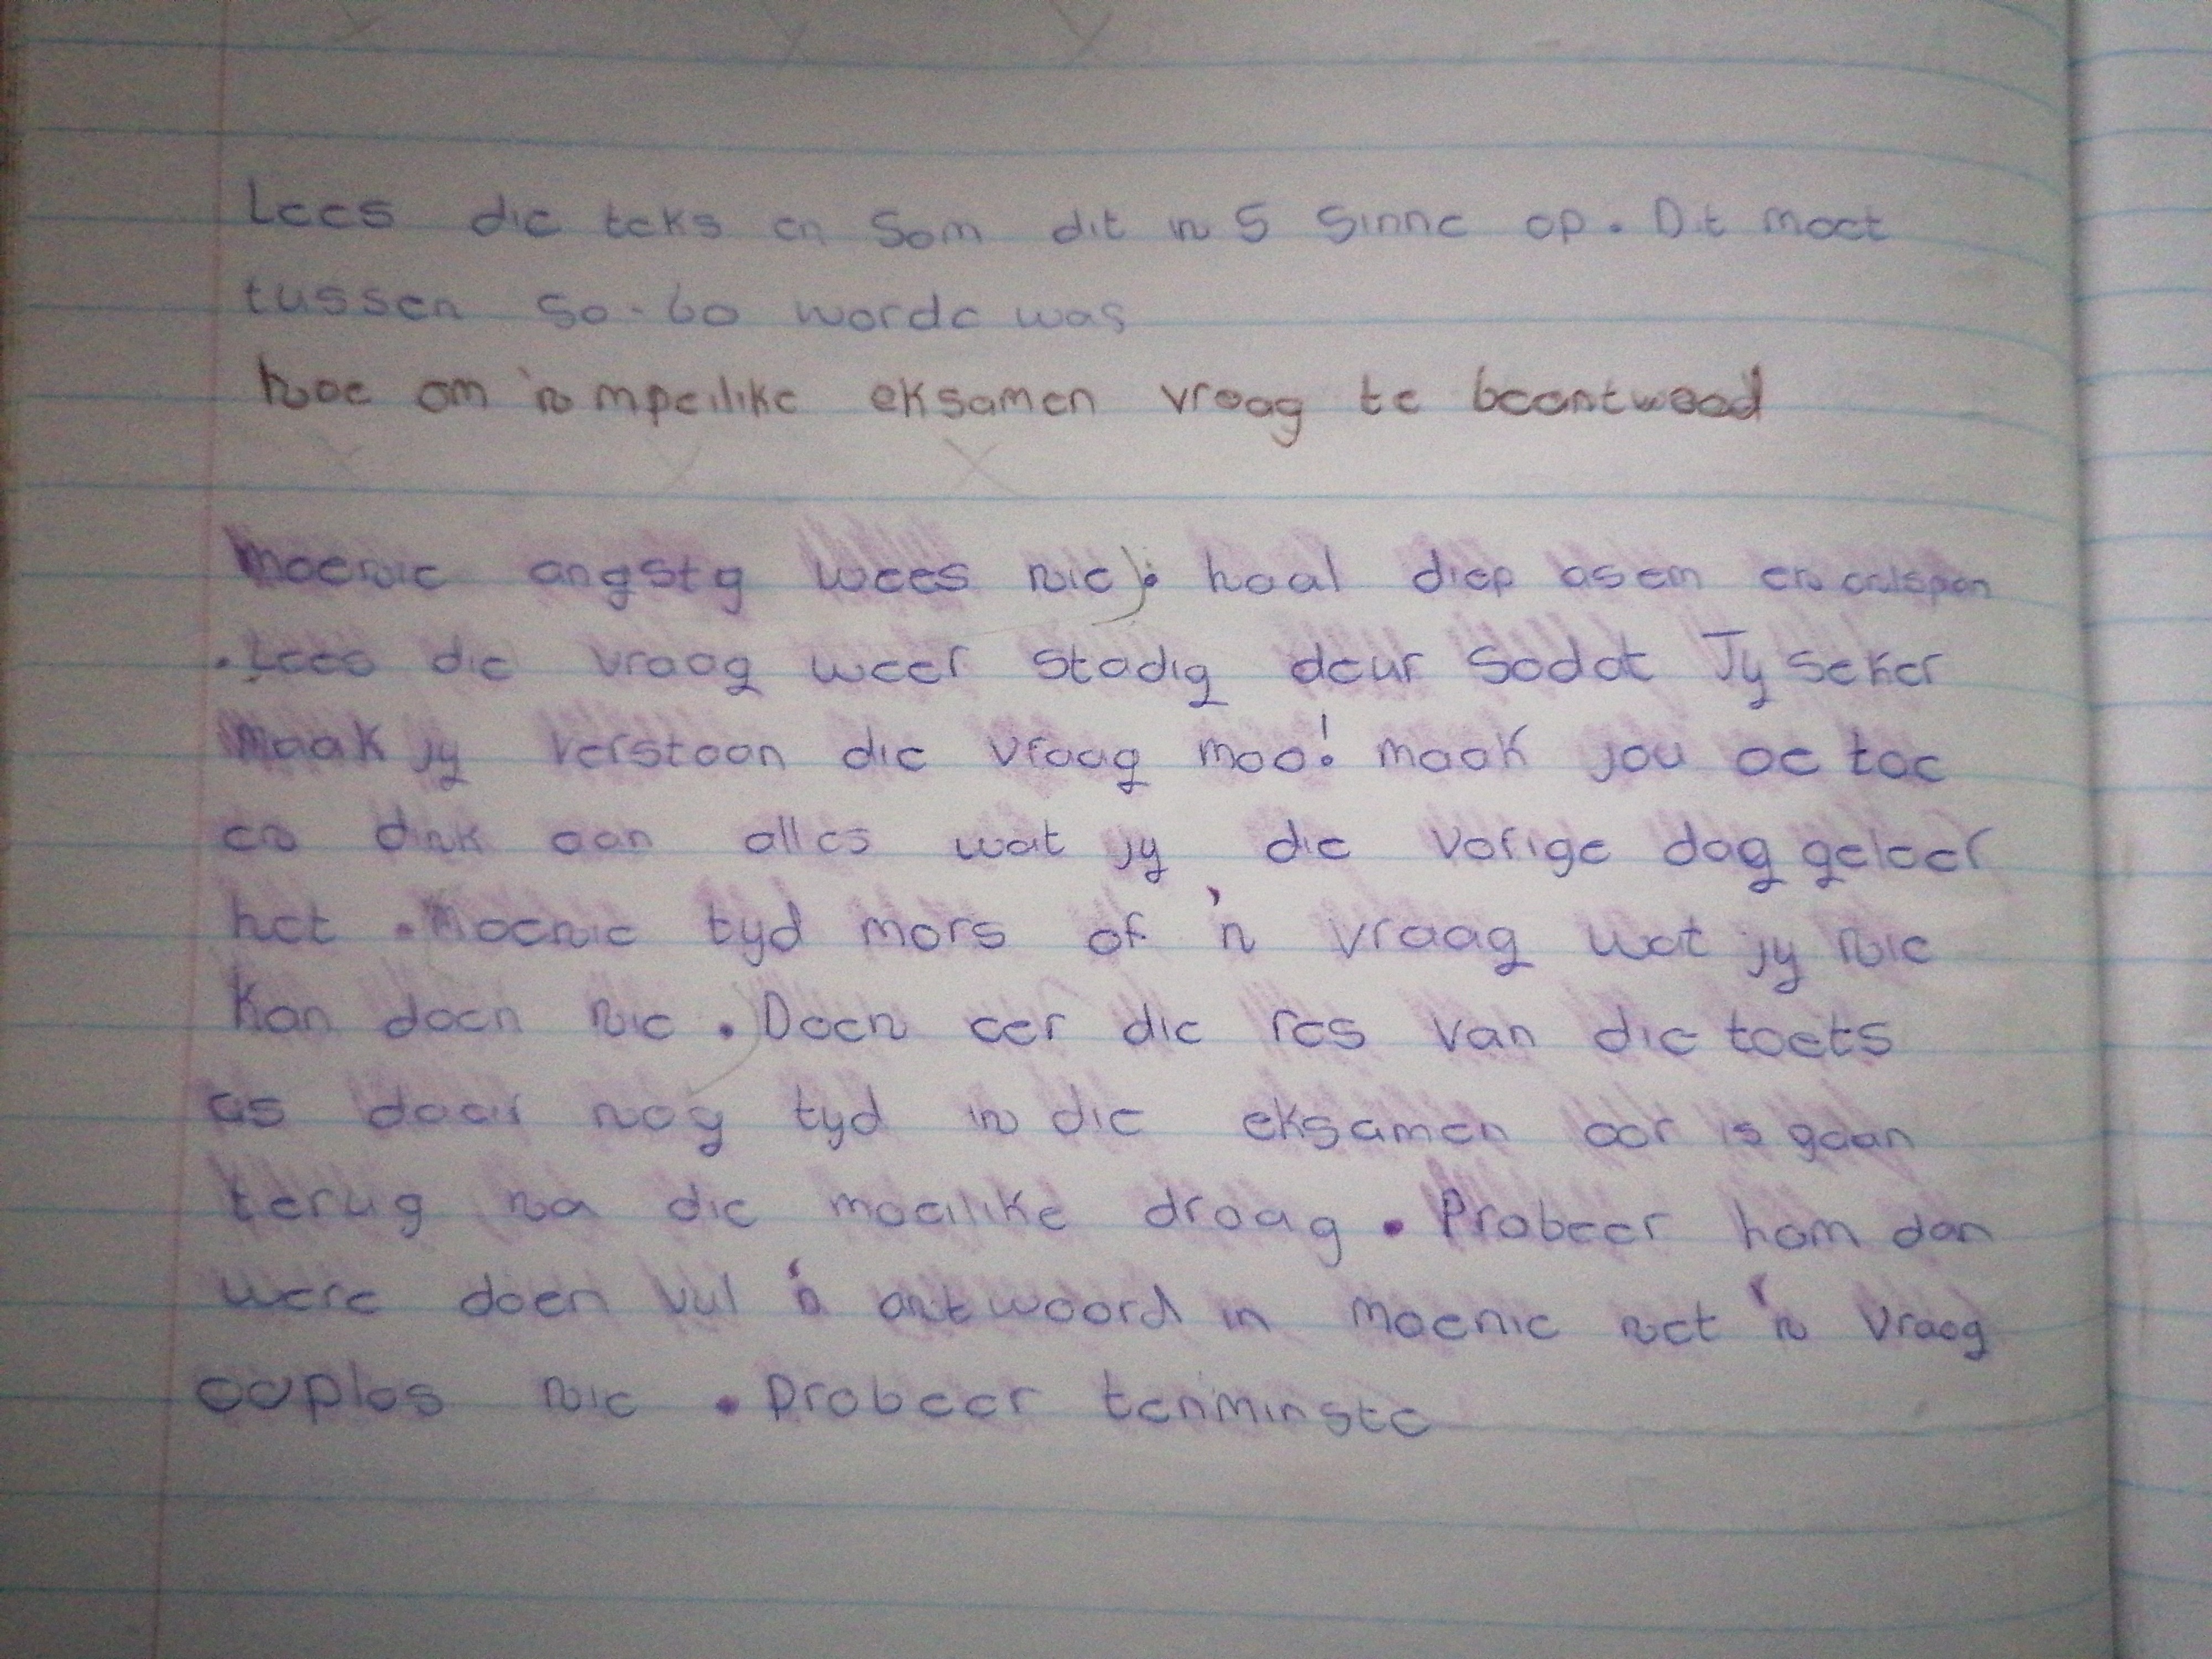 Lees die teks en Som dit in 5 Sinne op. Dit moet
tussen 50-60 worde was
hoe om 'n mpeilike eksamen vraag te beantwood
Moenie angstg wees nie). haal diep asem en ontspan
.Lees die vraag weer stadig deur Sodat Jy seker
maak jy verstaan die vraag moo! maak jou oe toe
en dink aan alles wat jy die vorige dag geleer
het . Moenie tyd mors of 'n vraag wat jy nie
Kan doen nie . Doen eer die res van die toets
as daar nog tyd in die eksamen oor is gaan
terug na die moeilike draag . Probeer hom dan
were doen vul 'n antwoord in moenie net 'n vraag
ooplos nie . Probeer tenminste